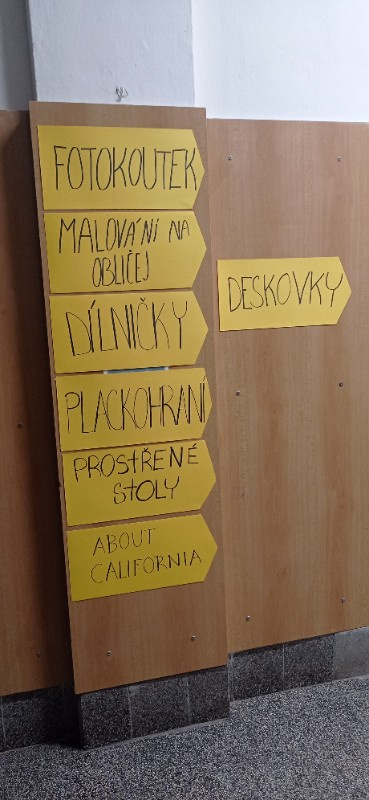 FOTOKOUTEK
MALOVÁNÍ NA
OBLIČEJ
DÍLNIČKY
PLACKOHRANÍ
PROSTŘENÉ
STOLY
ABOUT
CALIFORNIA
DESKOVKY